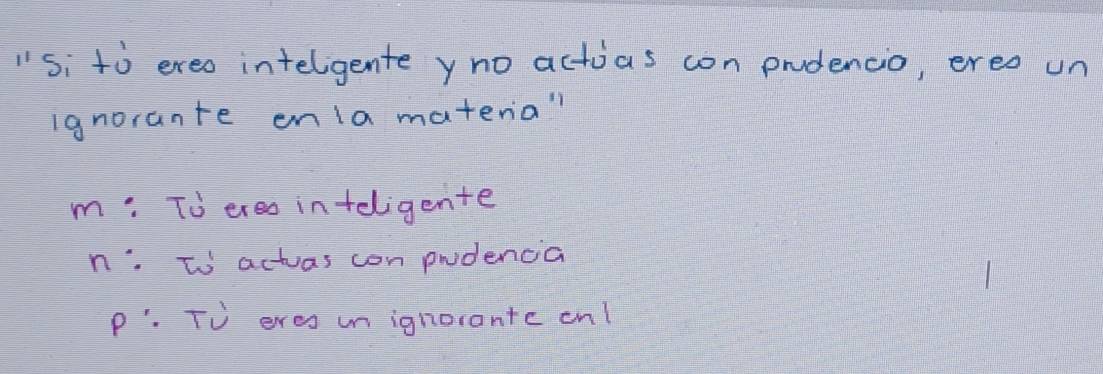 "Si tú eres inteligente y no actúas con prudencia, eres un
ignorante en la materia"
m: Tú eres inteligente
n: Tú actuas con prudencia
p: Tú eres un ignorante enl